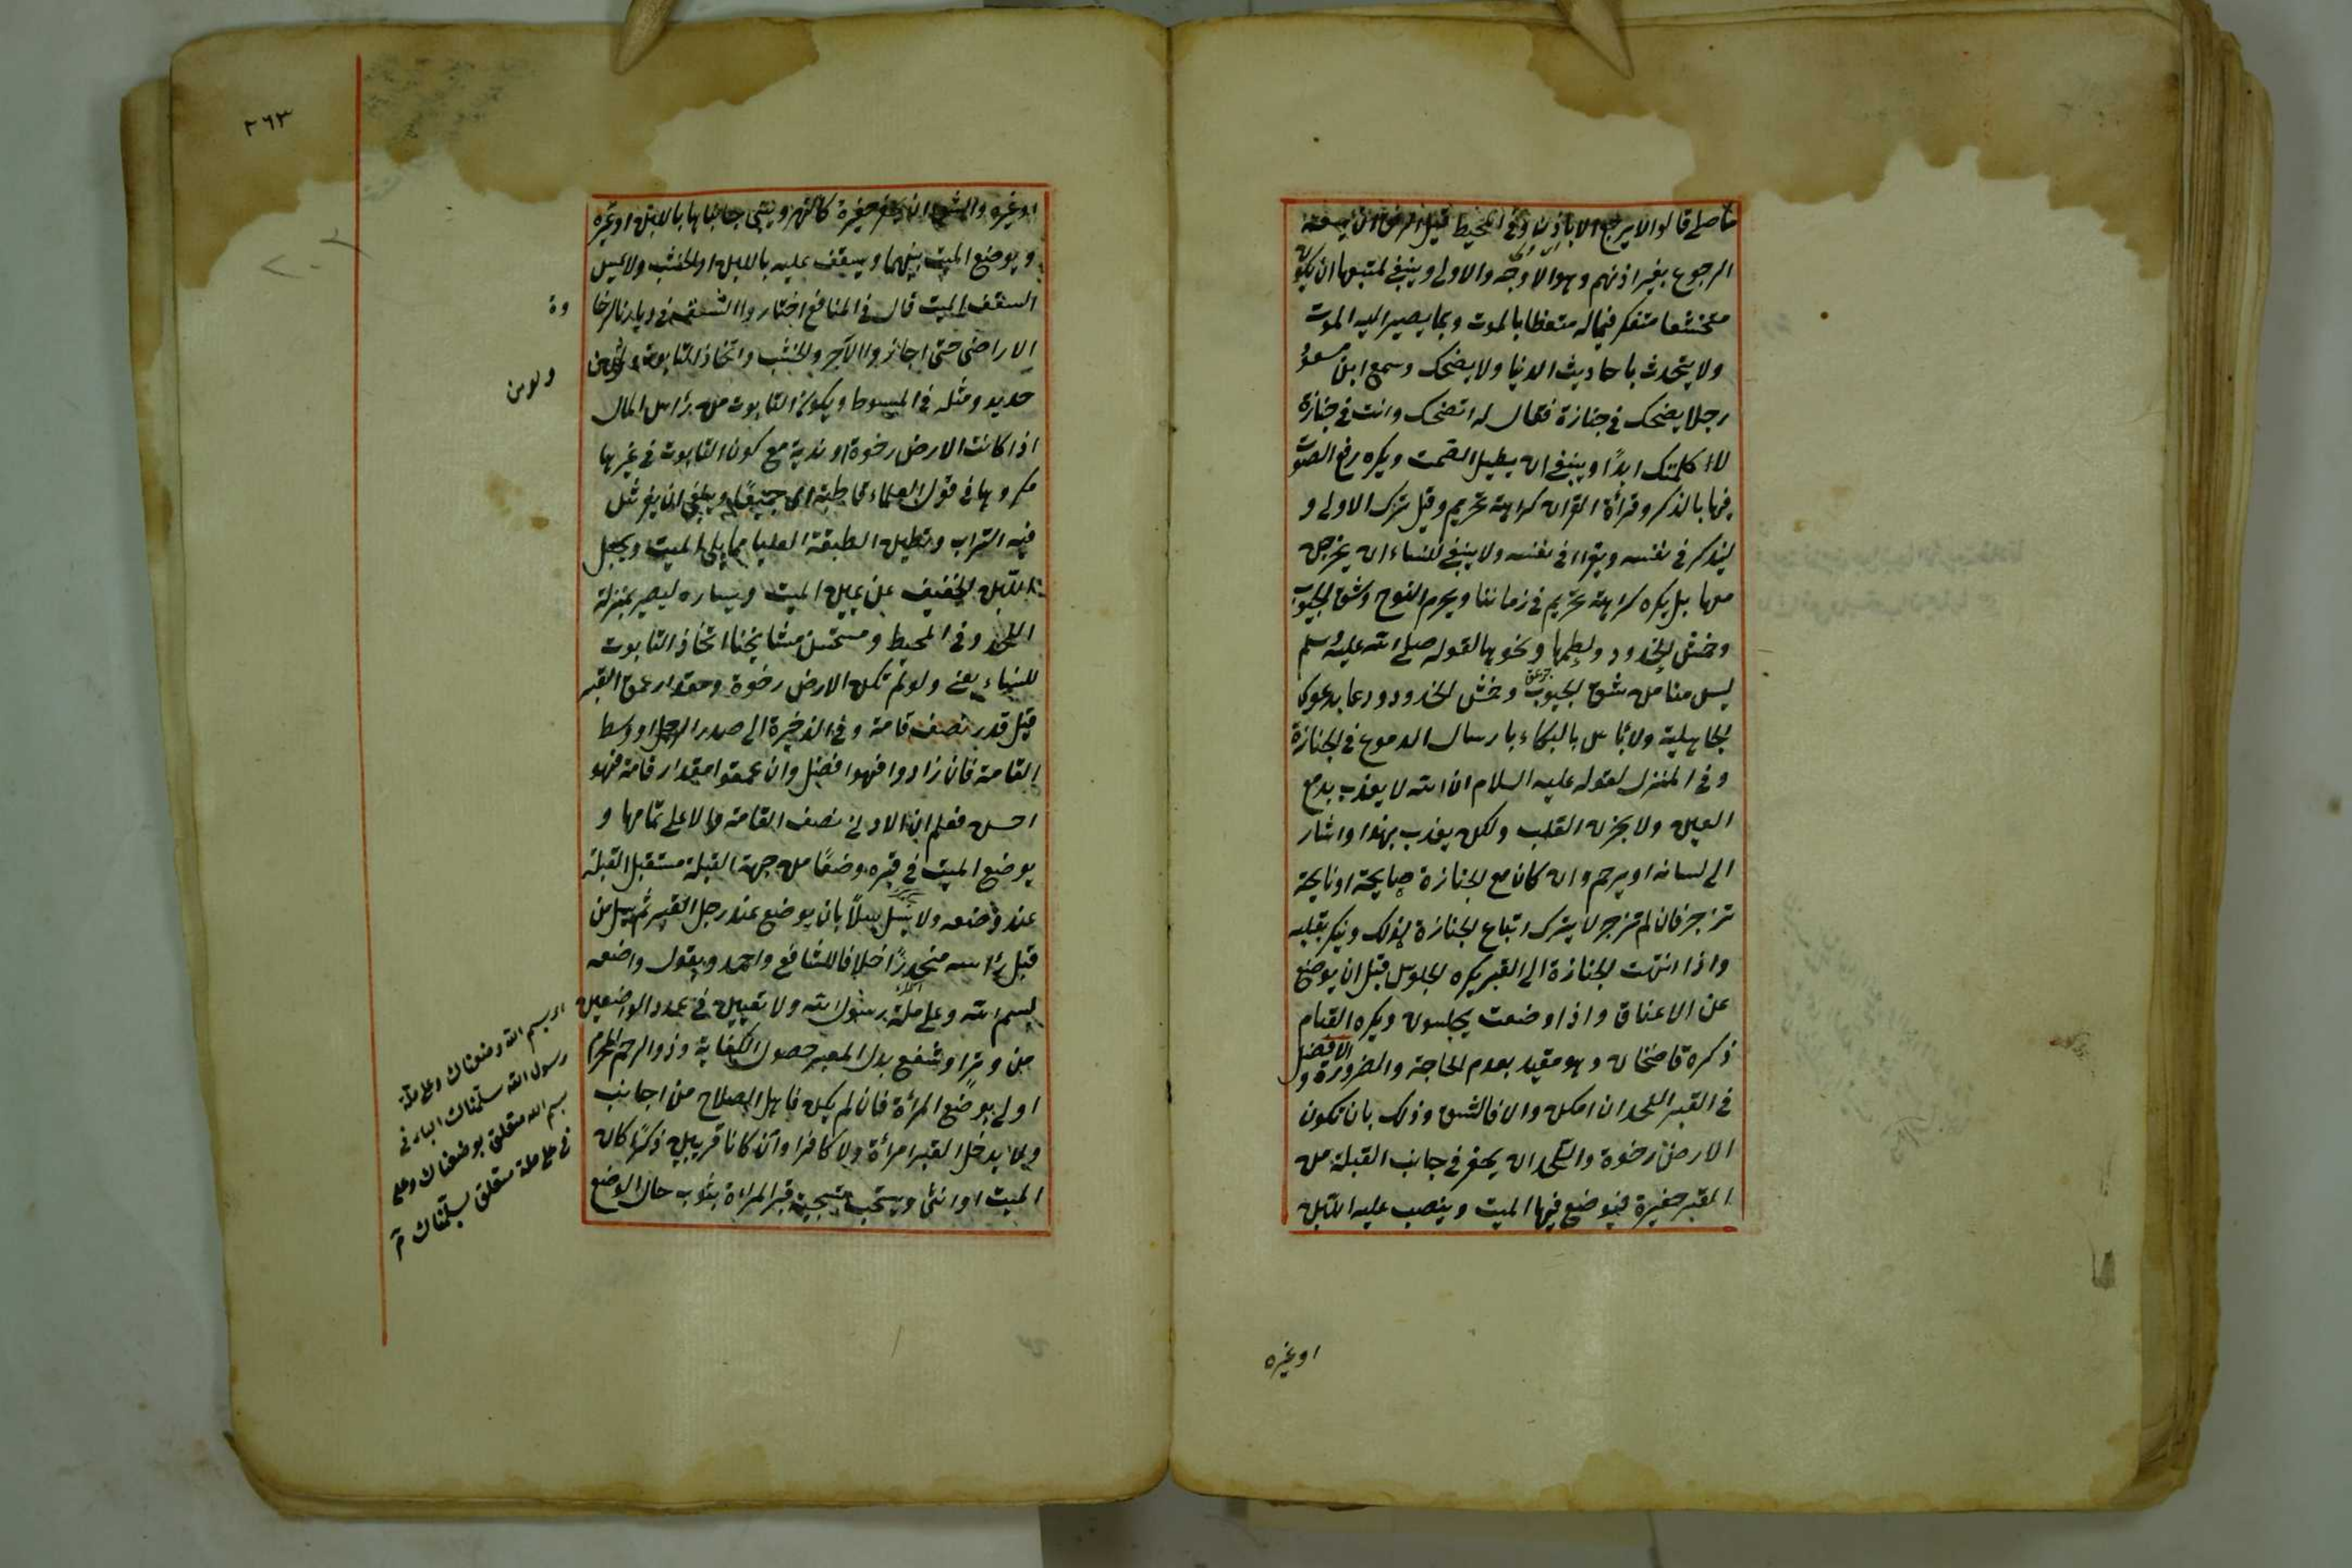 قالوا لا يرجع الا باذن وفي المحيط قيل الدفن يسعه
الرجوع بغير اذنهم وهو الاوجه والاولى وينبغي لمتبعها ان يكون
متخشعا متفكر فيماله متعظا بالموت وبما يصير اليه الموت
ولا يتحدث باحاديث الدنيا ولا يضحك وسمع ابن مسعود
رجلا يضحك في جنازة فقال له اتضحك وانت في جنازة
لا كلمتك ابدًا وينبغي ان يطيل الصمت ويكره رفع الصوت
فيها بالذكر وقرأة القران كراهة تحريم وقيل ترك الاولى و
ليذكر في نفسه ويقرا في نفسه ولا ينبغي للنساء ان يخرجن
معها بل يكره كراهة تحريم في زماننا ويحرم النوح وشق الجيوب
وخمش الخدود ولطمها ونحوها لقوله صلى الله عليه سلم
ليس منا من شق الجيوب وخمش الخدود ودعا بدعوى
الجاهلية ولا بأس بالبكاء بارسال الدموع في الجنازة
وفي المنزل لقوله عليه السلام ان الله لا يعذب بدمع
العين ولا بحزن القلب ولكن يعذب بهذا واشار
الى لسانه او يرحم وان كان مع الجنازة صايحة او نايحة
تزجر فان لم تزجر لا يترك اتباع الجنازة لذلك وينكر بقلبه
واذا انتهت الجنازة الى القبر يكره الجلوس قبل ان يوضع
عن الاعناق واذا وضعت يجلسون ويكره القيام
ذكره قاضخان وهو مقيد بعدم الحاجة والضرورة و الافضل
في القبر اللحد ان امكن والا فالشق وذلك بان تكون
الارض رخوة واللحد ان يحفر في جانب القبلة من
القبر حفيرة فيوضع فيها الميت وينصب عليه اللبن
اوغيره
٢٦٣
اوغيره والشق ان يحفر حفيرة كالنهر ويبنى جانباها باللبن او غيره
ويوضع الميت بينهما ويسقف عليه باللبن او الخشب ولا يمس
السقف الميت قال في المنافع اختاروا الشق في ديارنا لرخا
وة
الاراضى حتى اجازوا الآجر والخشب واتخاذ التابوت ولو من
ولو من
حديد ومثله في المبسوط ويكون التابوت من رأس المال
اذا كانت الارض رخوة او ندية مع كون التابوت في غيرها
مكروها في قول العلماء قاطبة اى جميعًا وينبغي ان يفرش
فيه التراب وتطين الطبقة العليا مما يلى الميت ويجعل
اللبن الخفيف عن يمين الميت ويساره ليصير بمنزلة
اللحد وفي المحيط واستحسن مشايخنا اتخاذ التابوت
للنساء يعني ولو لم تكن الارض رخوة ومقدار عمق القبر
قيل قدر نصف قامة وفي الذخيرة الى صدر الرجل او وسط
القامة فان زادوا فهو افضل وان عمقوا مقدار قامة فهو
احسن فعلم ان الادنى نصف القامة والاعلى تمامها و
يوضع الميت في قبره وضعًا من جهة القبلة مستقبل القبلة
عند وضعه ولا يسل سلًا بان يوضع عند رجل القبر ثم يسل من
قبل رأسه منحدرًا خلافا للشافع واحمد ويقول واضعه
بسم الله وعلى ملة رسول الله ولا تعيين في عدد الواضعين
من وتر او شفع بل المعتبر حصول الكفاية وذو الرحم المحرم
اولى بوضع المرأة فان لم يكن فاهل الصلاح من اجانب
ولا يدخل القبر امرأة ولا كافر وان كانا قريبين ذكرًا كان
الميت او انثى ويستحب تسجية قبر المراة بثوب حال الوضع
اى بسم الله وضعناك وعلى ملة
رسول الله سلمناك الباء في
بسم الله متعلق بوضعناك وعلى
في على ملة متعلق بسلمناك